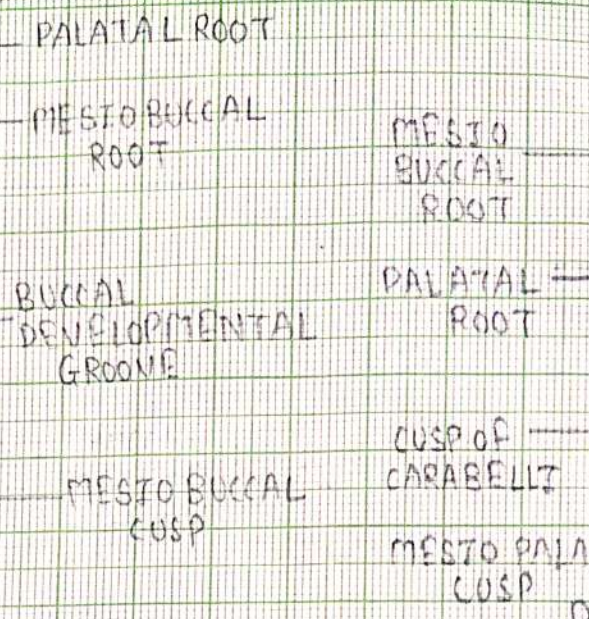 PALATAL ROOT
MESIOBUCCAL
ROOT
BUCCAL
DEVELOPMENTAL
GROOVE
MESIOBUCCAL
CUSP
MESIO
BUCCAL
ROOT
PALATAL
ROOT
CUSP OF
CARABELLI
MESIO PALA
CUSP